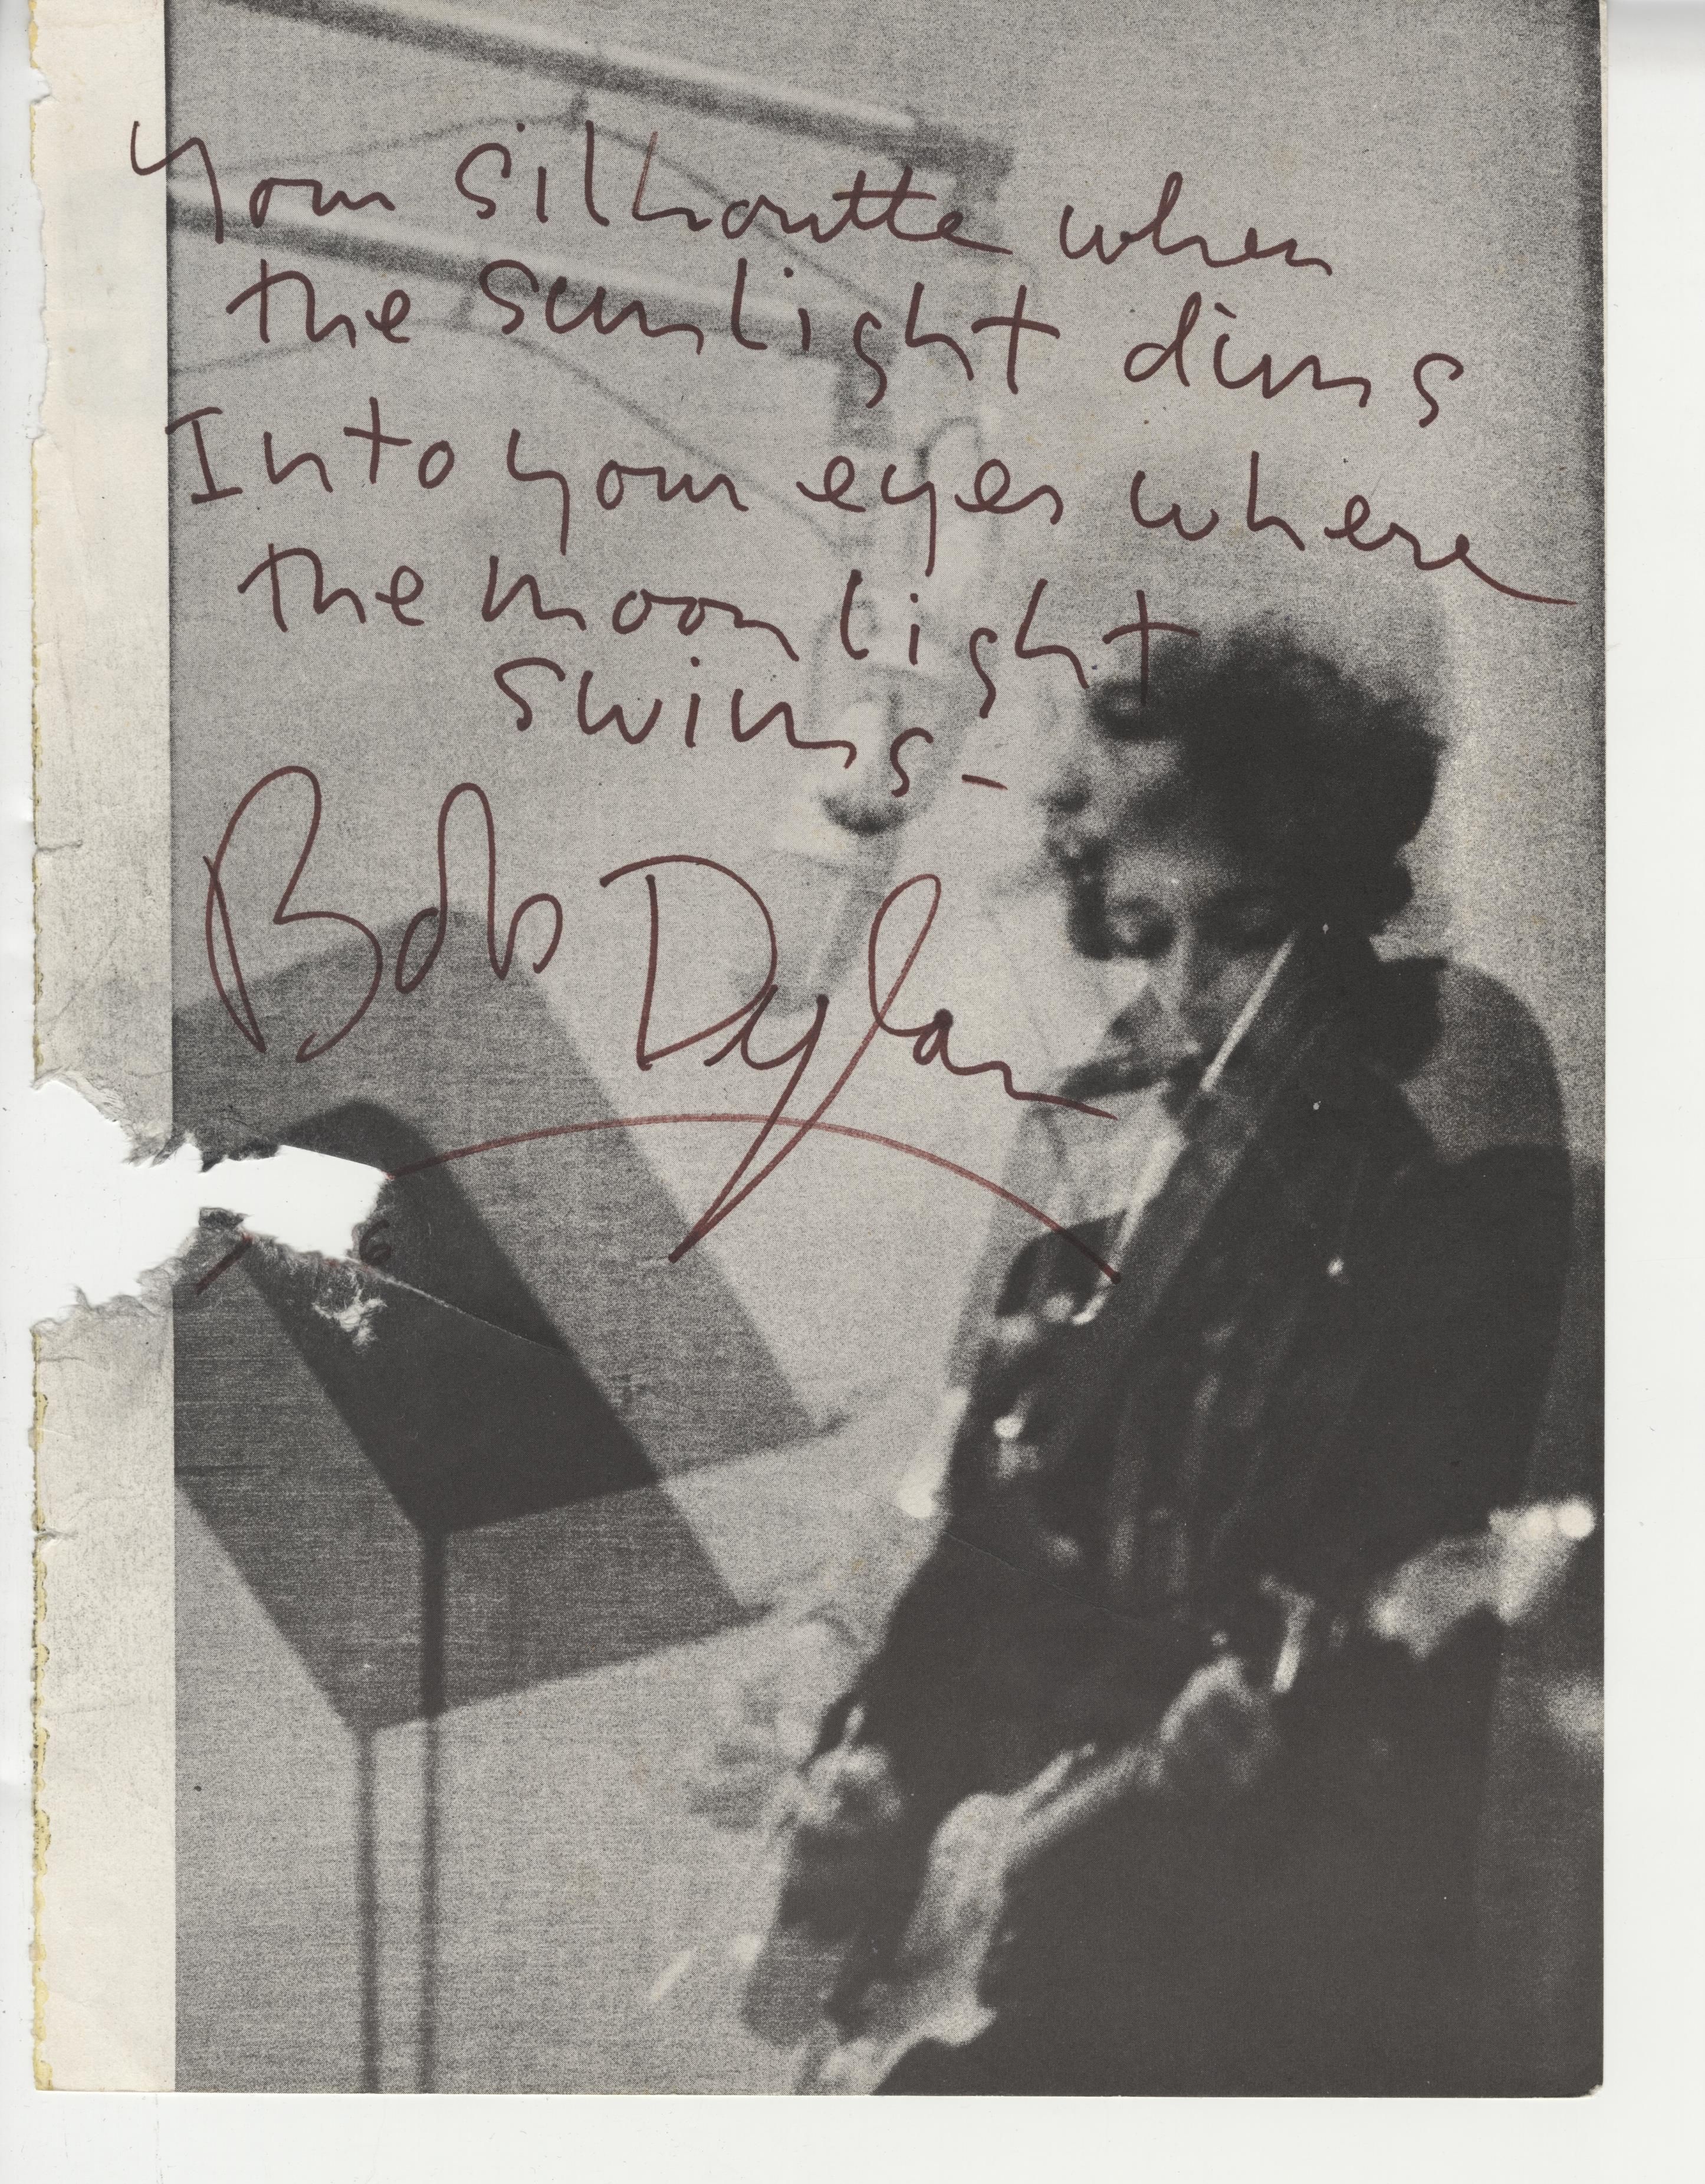 your silhoutte when
the sunlight dims
Into your eyes where
the moonlight
swims -
Bob Dylan